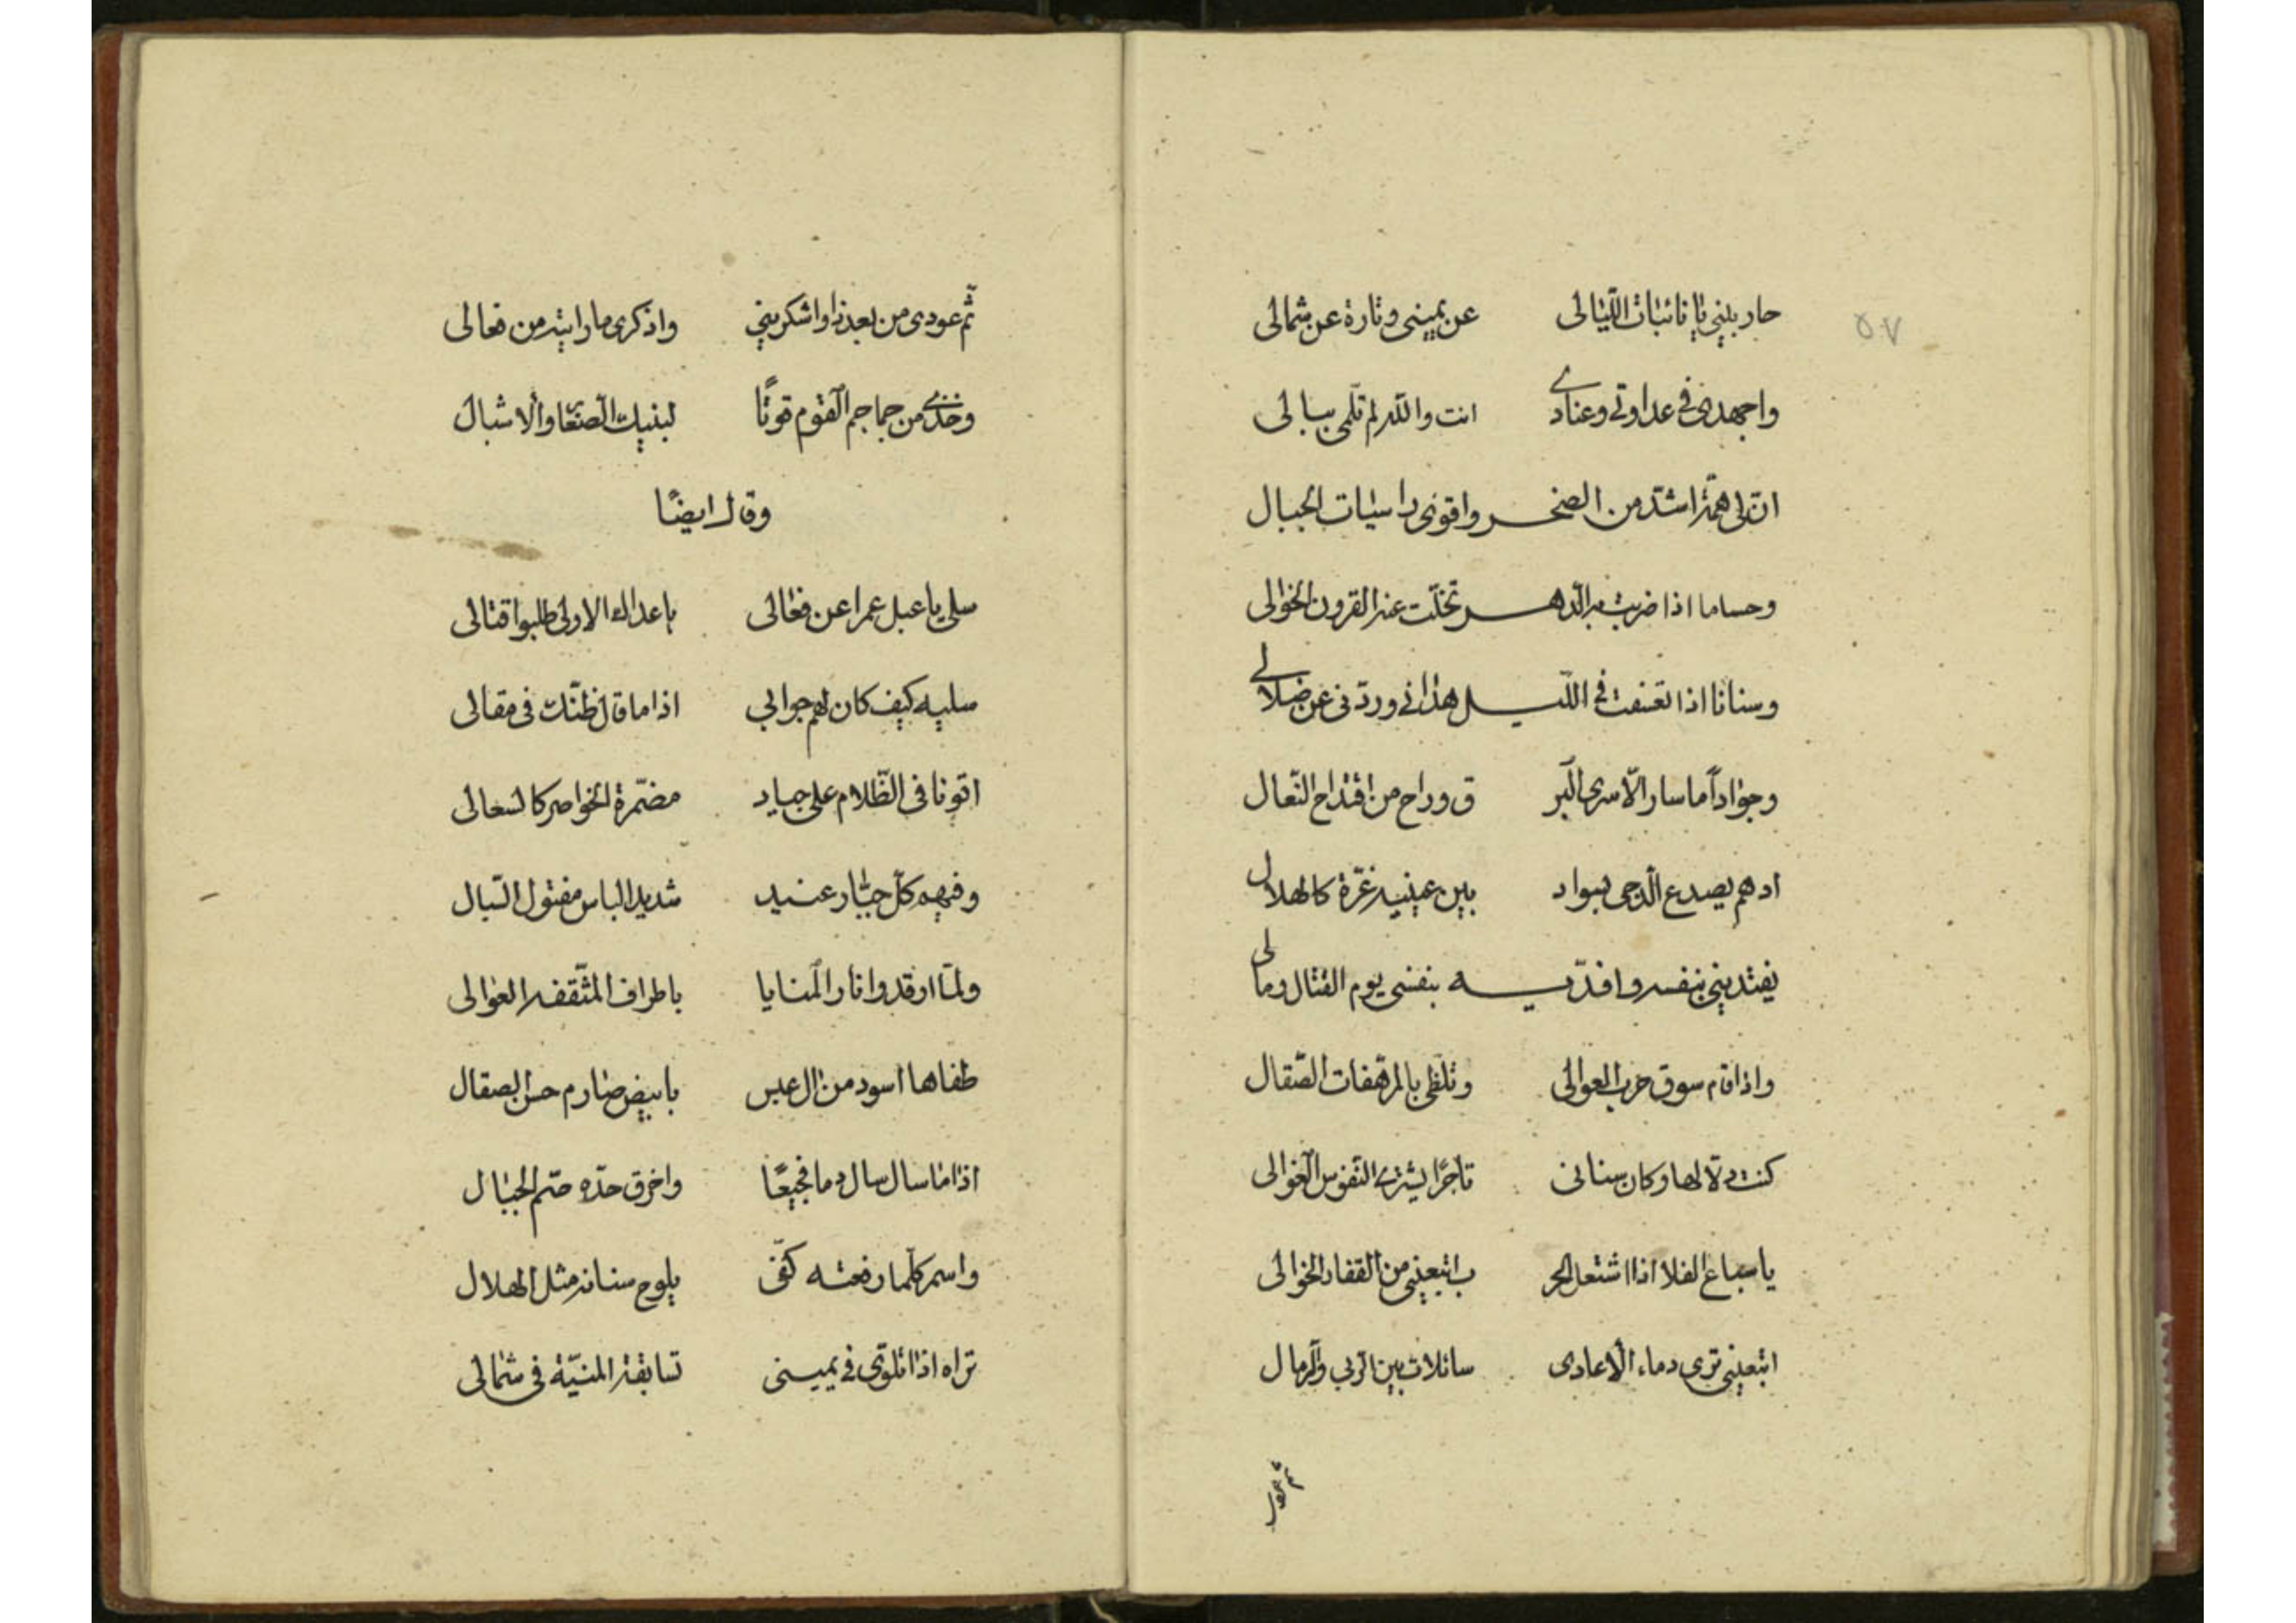 ٥٧
حاربيني يا نائبات اللّيالى عن يمينى وتارة عن شمالى
واجهدى فى عداوتى وعنادے انت والله لم تلمى ببالى
انّ لى همّة اشدّ من الصخر واقوى راسيات الجبال
وحساما اذا ضربت به الدّهر تخلّت عنه القرون الخوالى
وسنانا اذا تعسفت فى اللّيل هدانى وردّنى عن ضلالے
وجواداً ما سار الّا سرى البر ق وراح من اقتداح النّعال
ادهم يصدع الدّجى بسواد بين عينيه غرّة كالهلال
يفتدينى بنفسه وافدّيه بنفسى يوم القتال ومالى
واذا قام سوق حرب العوالى وتلظى بالمرهفات الصّقال
كنت دلّالها وكان سنانى تاجرًا يشترى النّفوس الغوالى
يا سباع الفلا اذا اشتعل الحر ب اتبعينى من القفار الخوالى
اتبعينى ترى دماء الاعادى سائلات بين الربى والرمال
ثم عودى
ثمّ عودى من بعد ذا واشكرينى واذكرى ما رايته من فعالى
وخذے من جماجم القوم قوتًا لبنيك الصغار والاشبال
وقال ايضًا
سلى يا عبل عمرا عن فعالى باعداك الاولى طلبوا قتالى
سليه كيف كان لهم جوابى اذا ما قال ظنّك فى مقالى
اتونا فى الظّلام على جياد مضمّرة الخواصر كالسعالى
وفيهم كلّ جبّار عنيد شديد الباس مفتول السّبال
ولمّا اوقدوا نار المنايا باطراف المثقّفه العوالى
طفاها اسود من ال عبس بابيض صارم حسن الصقال
اذا ما سال سال دما نجيعًا واخرق حدّه صمّ الجبال
واسمر كلّما رفعته كفّى يلوح سنانه مثل الهلال
تراه اذا تلوّى فى يمينى تسابقه المنيّة فى شمالى